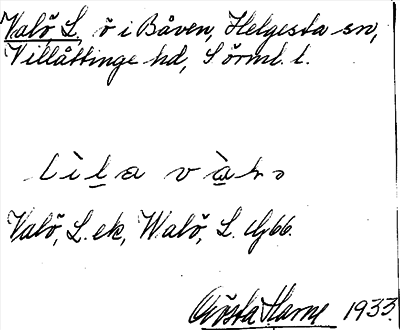 Valö, L. ö i Båven, Helgesta sn,
Villåttinge hd, Sörml. l.
lìla và
Valö, L. ek, Walö, L.
Gösta Harne 1933.